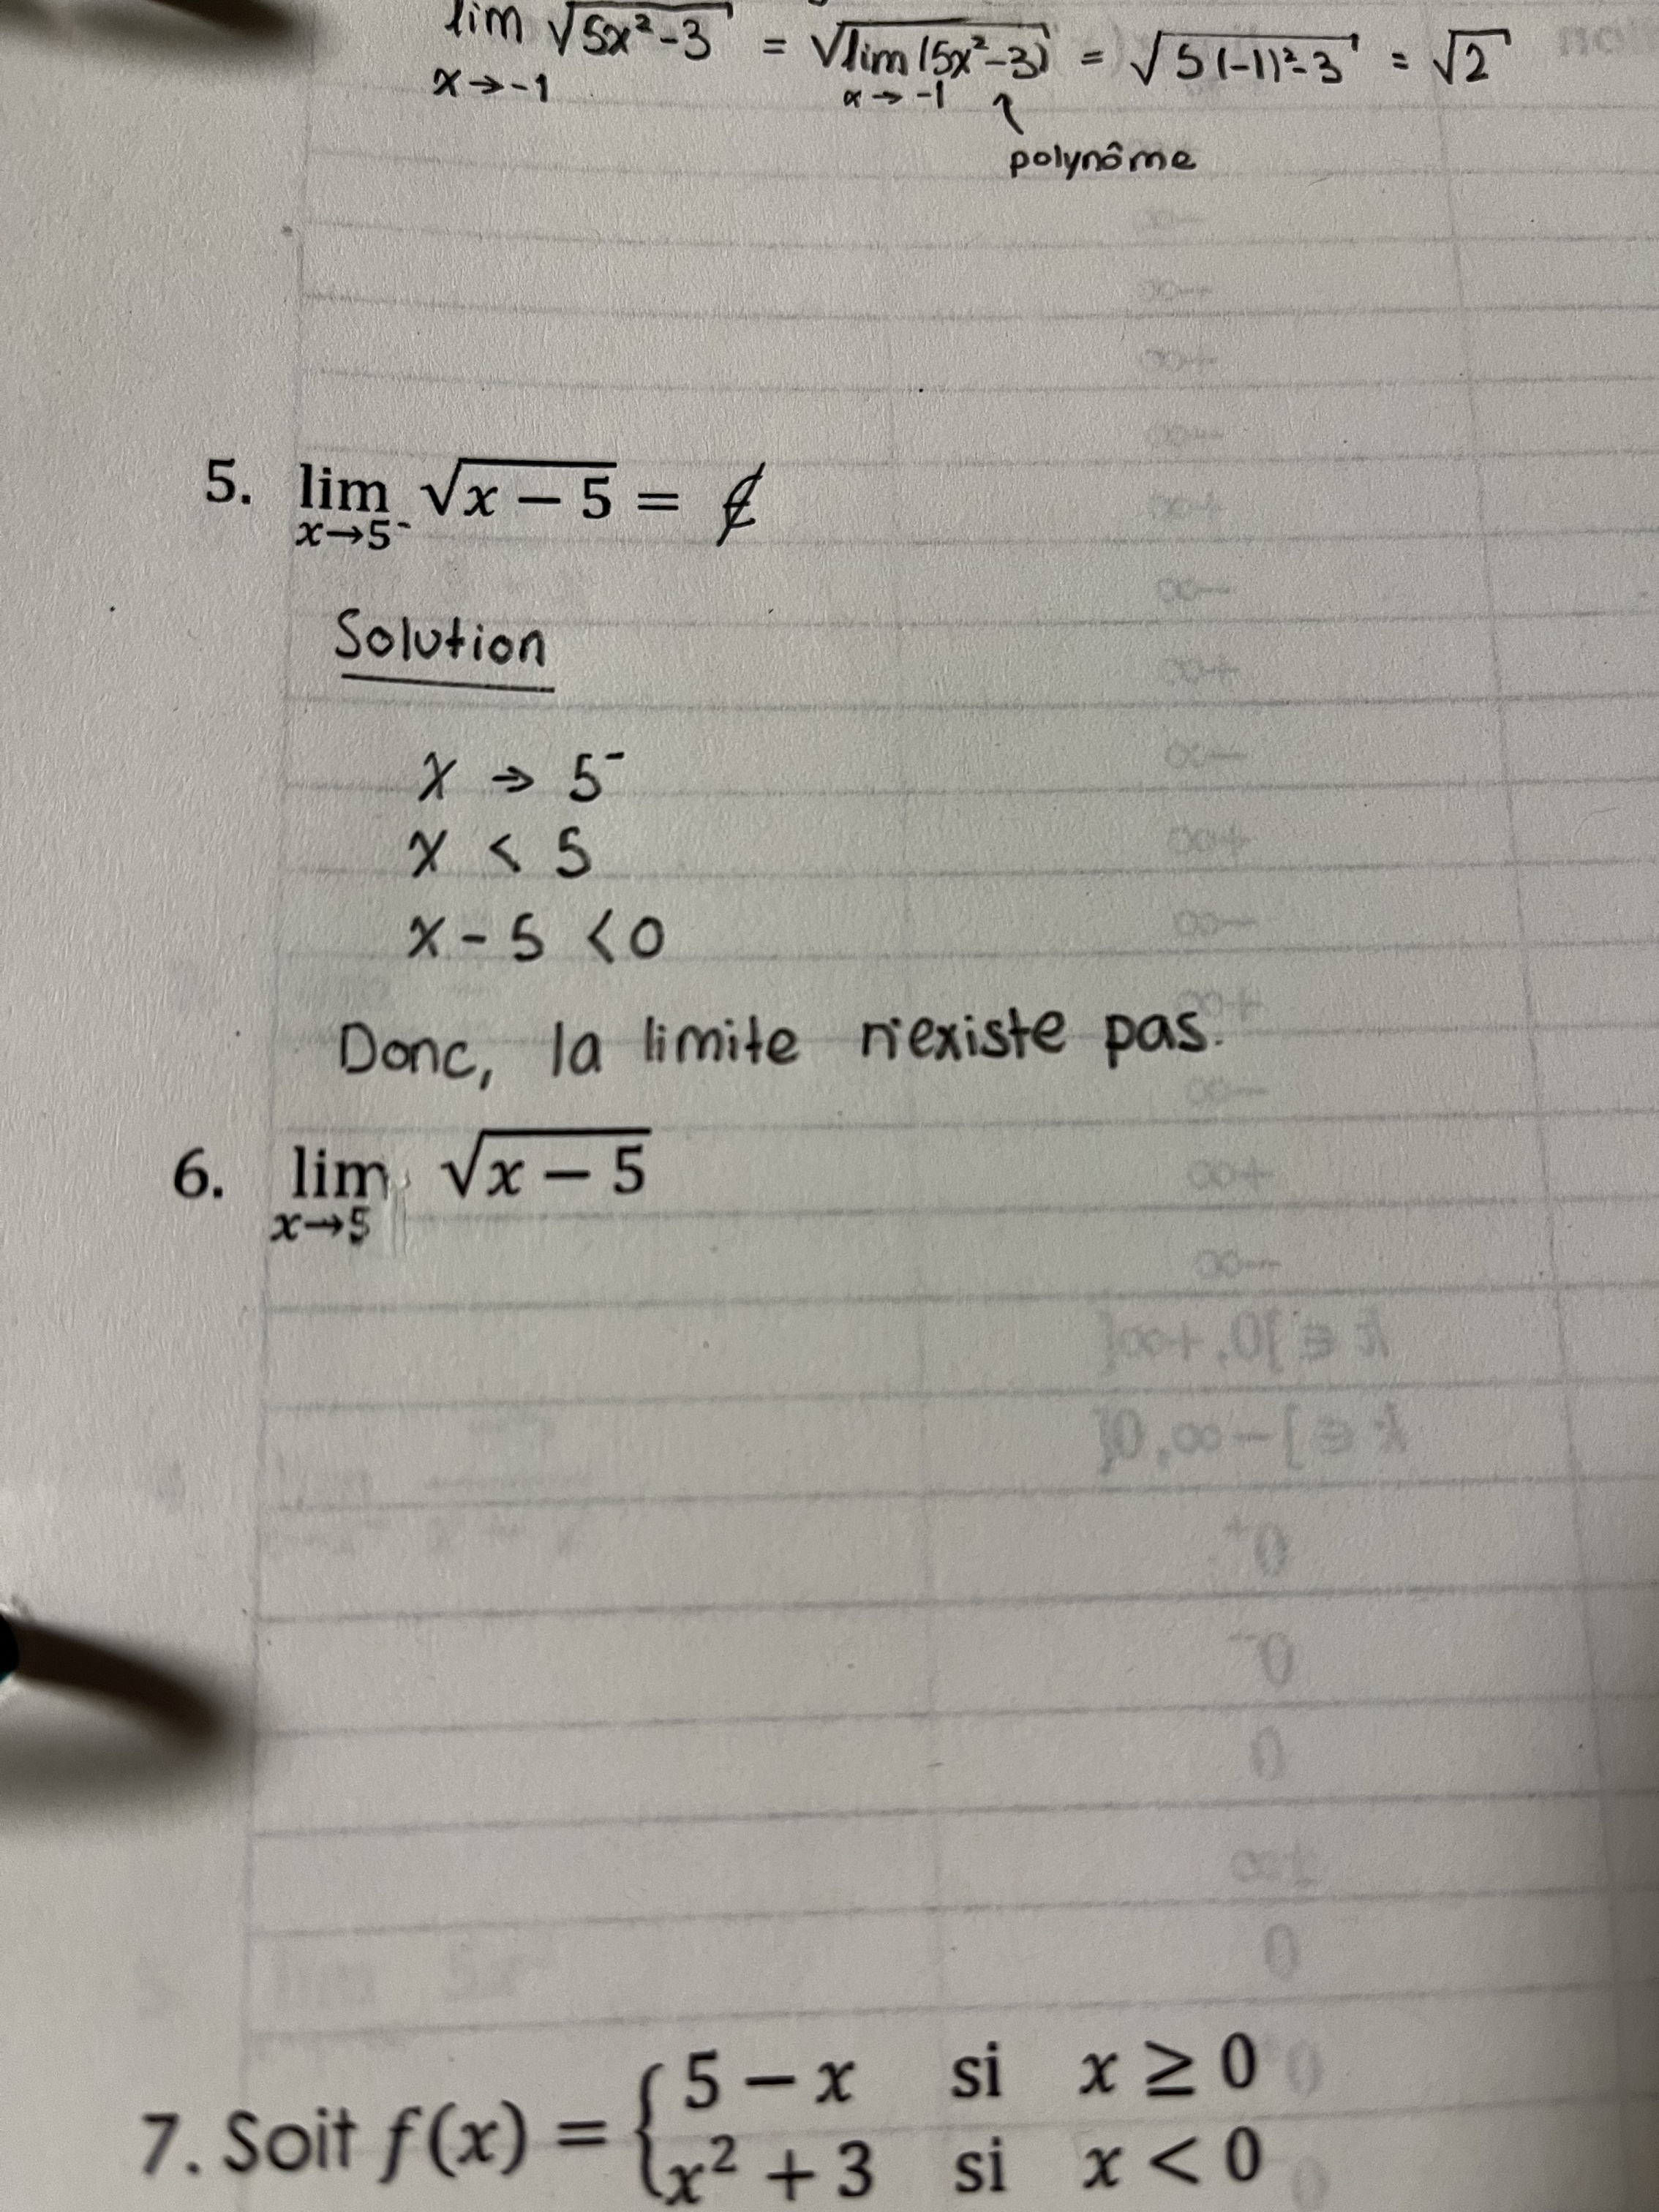 lim √(5x²-3) = √(lim (5x²-3)) = √(5(-1)²-3) = √2
x→-1 x→-1 ↑
polynôme
5. lim √(x − 5) = ∄
x→5⁻
Solution
x → 5⁻
x < 5
x - 5 < 0
Donc, la limite n'existe pas.
6. lim √(x − 5)
x→5
7. Soit f(x) = { 5 − x si x ≥ 0
x² + 3 si x < 0